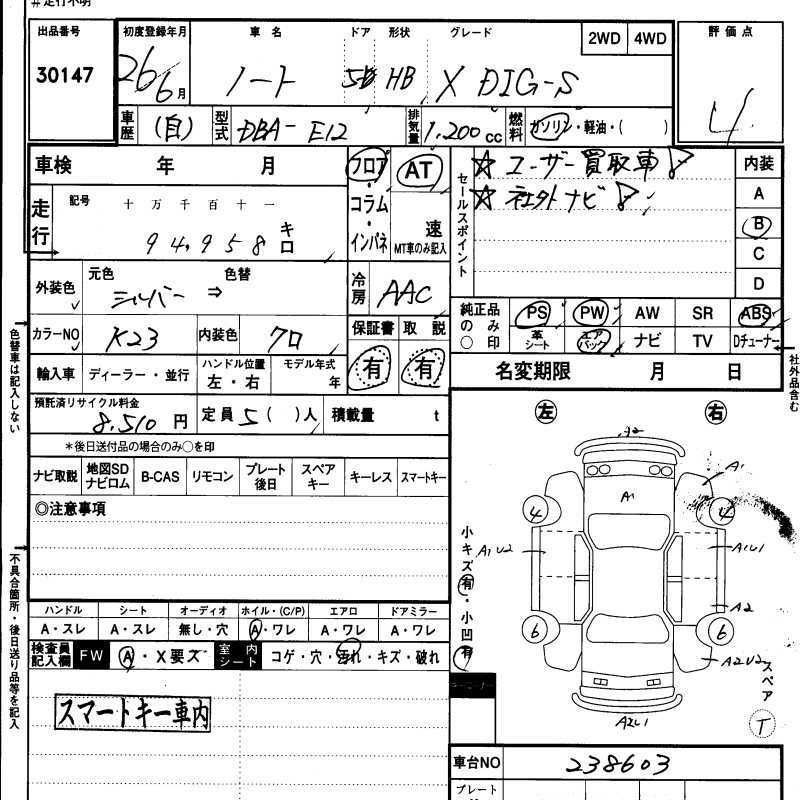 #走行不明
出品番号 初度登録年月 車名 ドア 形状 グレード 2WD 4WD 評価点
30147 26 6月 ノート 5D HB X DIG-S 4
車歴 (自) 型式 DBA-E12 排気量 1,200cc 燃料 ガソリン・軽油・( )
車検 年 月 フロア・コラム・インパネ AT 速 MT車のみ記入
セールスポイント ☆ユーザー買取車!
☆社外ナビ!
内装
A
B
C
D
走行 記号 十万千百十一
94,958 キロ
外装色 元色 シルバー ⇒ 色替 冷房 AAC
カラーNO K23 内装色 クロ 保証書 有 取説 有
純正品のみ○印 PS PW AW SR ABS
革シート エアバック ナビ TV Dチューナー
輸入車 ディーラー・並行 ハンドル位置 左・右 モデル年式 年
名変期限 月 日
預託済リサイクル料金 8,510円 定員 5( )人 積載量 t
*後日送付品の場合のみ○を印
ナビ取説 地図SDナビロム B-CAS リモコン プレート後日 スペアキー キーレス スマートキー
◎注意事項
ハンドル シート オーディオ ホイル・(C/P) エアロ ドアミラー
A・スレ A・スレ 無し・穴 A・ワレ A・ワレ A・ワレ
検査員記入欄 FW A・X要ズ 室内シート コゲ・穴・汚れ・キズ・破れ
スマートキー車内
色替車は記入しない
不具合箇所・後日送り品等を記入
社外品含む
左 右
A2
A1
A1
4 4
A1U2 A1U1
A2
6 6
A2U2
A2U1
小キズ有・小凹有
スペア
T
車台NO 238603
プレート